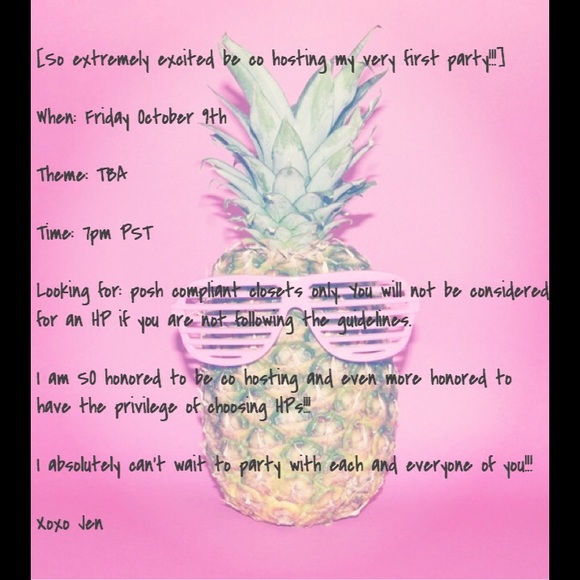 [So extremely excited be co hosting my very first party!!!]
When: Friday October 9th
Theme: TBA
Time: 7pm PST
Looking for: posh compliant closets only. You will not be considered
for an HP if you are not following the guidelines.
I am SO honored to be co hosting and even more honored to
have the privilege of choosing HPs!!!
I absolutely can't wait to party with each and everyone of you!!!
Xoxo Jen